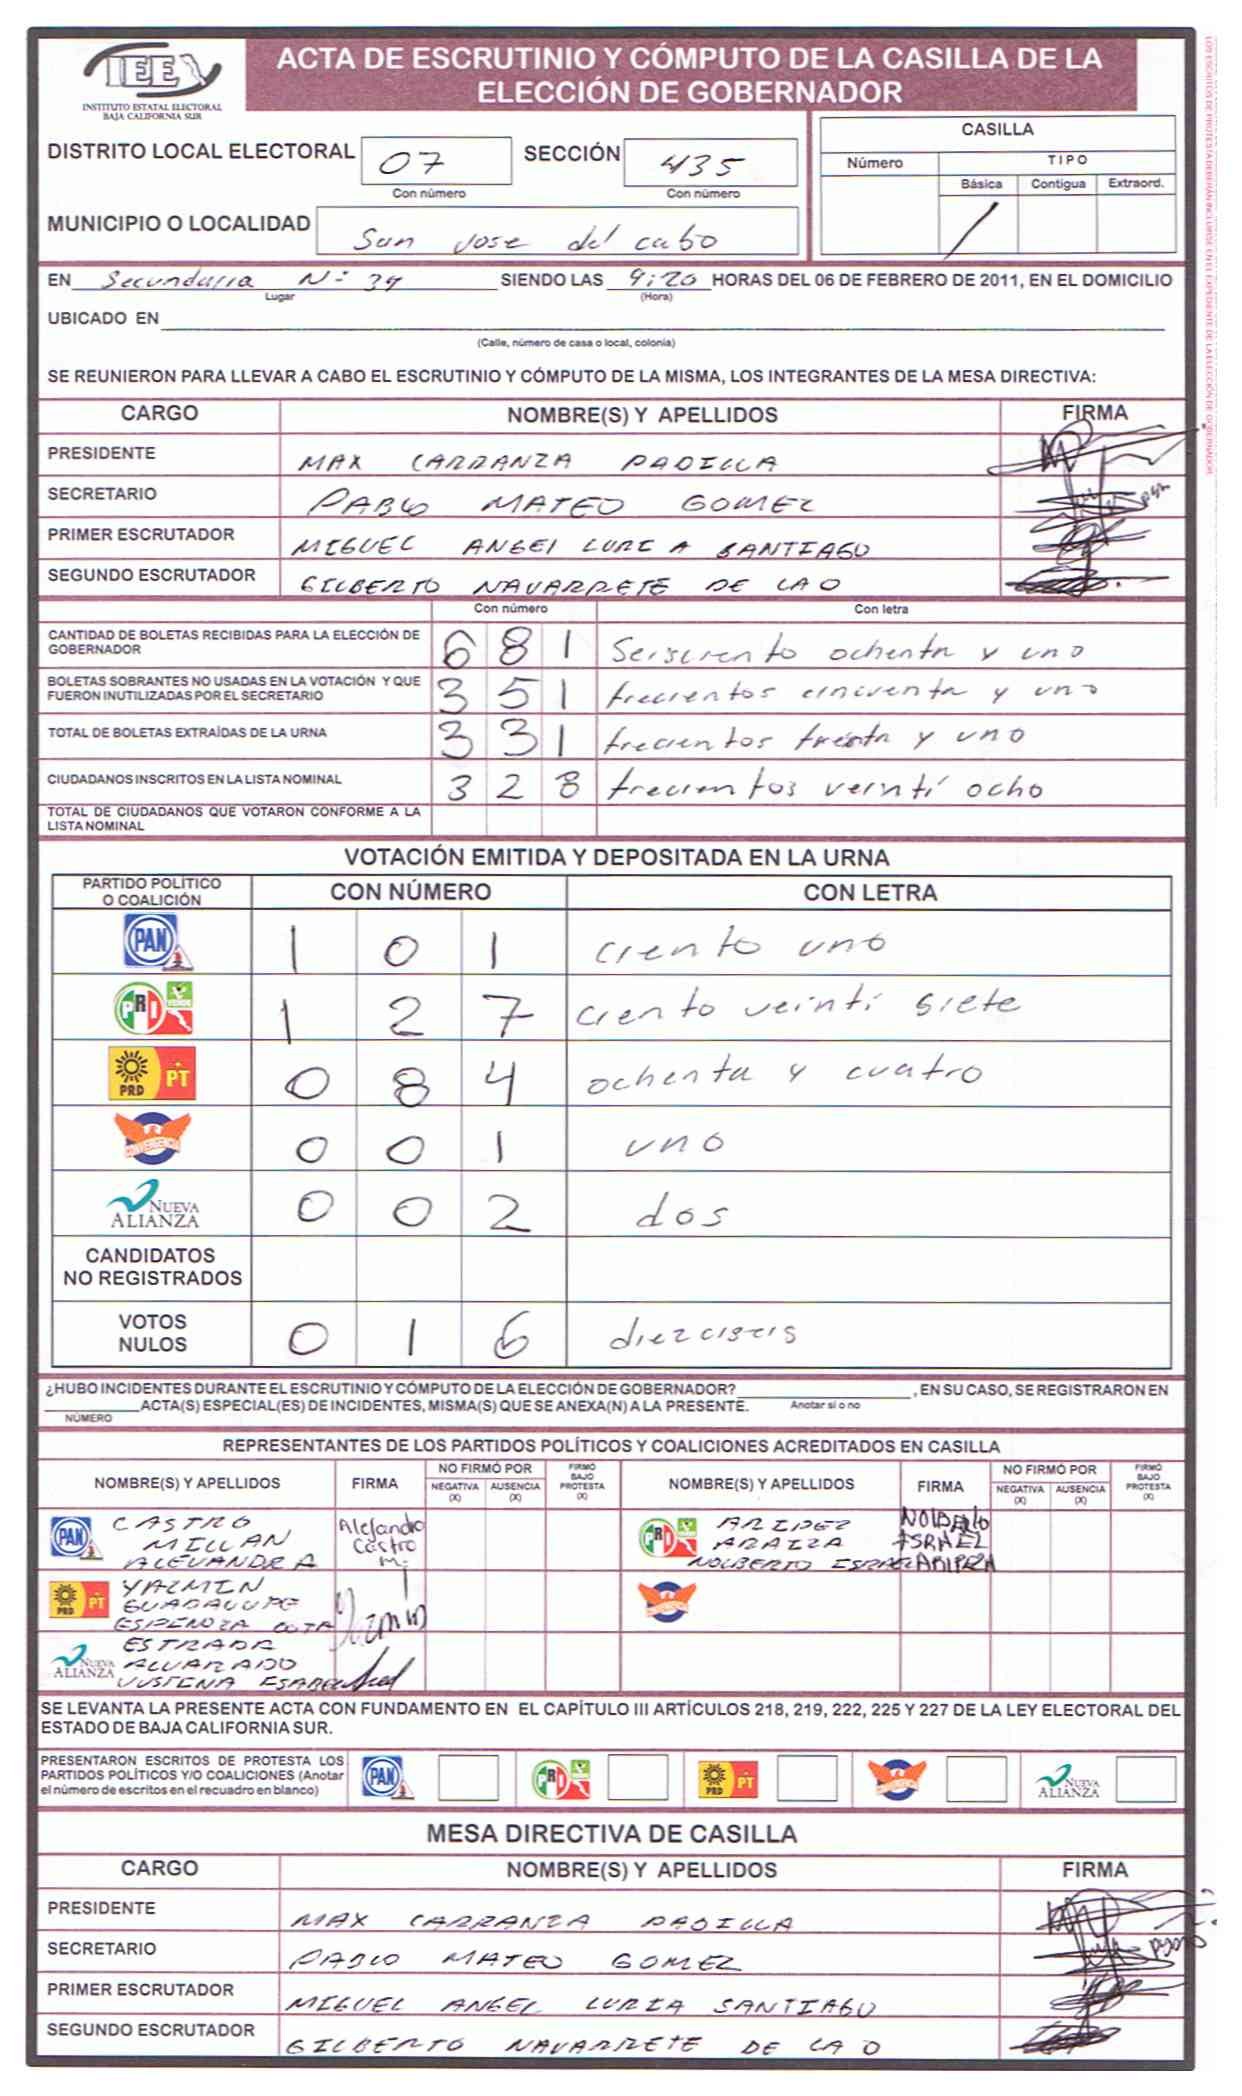 IEE
INSTITUTO ESTATAL ELECTORAL
BAJA CALIFORNIA SUR
ACTA DE ESCRUTINIO Y CÓMPUTO DE LA CASILLA DE LA
ELECCIÓN DE GOBERNADOR
DISTRITO LOCAL ELECTORAL 07 SECCIÓN 435
Con número Con número
MUNICIPIO O LOCALIDAD San Jose del cabo
CASILLA
Número TIPO
Básica Contigua Extraord.
/
EN Secundaria Nº 34 SIENDO LAS 9:20 HORAS DEL 06 DE FEBRERO DE 2011, EN EL DOMICILIO
Lugar (Hora)
UBICADO EN
(Calle, número de casa o local, colonia)
SE REUNIERON PARA LLEVAR A CABO EL ESCRUTINIO Y CÓMPUTO DE LA MISMA, LOS INTEGRANTES DE LA MESA DIRECTIVA:
CARGO NOMBRE(S) Y APELLIDOS FIRMA
PRESIDENTE MAX CARRANZA PADILLA
SECRETARIO PABLO MATEO GOMEZ
PRIMER ESCRUTADOR MIGUEL ANGEL LURIA SANTIAGO
SEGUNDO ESCRUTADOR GILBERTO NAVARRETE DE LA O
Con número Con letra
CANTIDAD DE BOLETAS RECIBIDAS PARA LA ELECCIÓN DE
GOBERNADOR 681 Seisciento ochenta y uno
BOLETAS SOBRANTES NO USADAS EN LA VOTACIÓN Y QUE
FUERON INUTILIZADAS POR EL SECRETARIO 351 trecientos cincuenta y uno
TOTAL DE BOLETAS EXTRAÍDAS DE LA URNA 331 trecientos treinta y uno
CIUDADANOS INSCRITOS EN LA LISTA NOMINAL 328 trecientos veinti ocho
TOTAL DE CIUDADANOS QUE VOTARON CONFORME A LA
LISTA NOMINAL
VOTACIÓN EMITIDA Y DEPOSITADA EN LA URNA
PARTIDO POLÍTICO
O COALICIÓN CON NÚMERO CON LETRA
PAN 1 0 1 ciento uno
PRI VERDE 1 2 7 ciento veinti siete
PRD PT 0 8 4 ochenta y cuatro
CONVERGENCIA 0 0 1 uno
NUEVA ALIANZA 0 0 2 dos
CANDIDATOS
NO REGISTRADOS
VOTOS
NULOS 0 1 6 diezciseis
¿HUBO INCIDENTES DURANTE EL ESCRUTINIO Y CÓMPUTO DE LA ELECCIÓN DE GOBERNADOR? , EN SU CASO, SE REGISTRARON EN
ACTA(S) ESPECIAL(ES) DE INCIDENTES, MISMA(S) QUE SE ANEXA(N) A LA PRESENTE. Anotar si o no
NÚMERO
REPRESENTANTES DE LOS PARTIDOS POLÍTICOS Y COALICIONES ACREDITADOS EN CASILLA
NOMBRE(S) Y APELLIDOS FIRMA NO FIRMÓ POR NEGATIVA (X) AUSENCIA (X) FIRMÓ BAJO PROTESTA (X) NOMBRE(S) Y APELLIDOS FIRMA NO FIRMÓ POR NEGATIVA (X) AUSENCIA (X) FIRMÓ BAJO PROTESTA (X)
PAN CASTRO
MILLAN
ALEJANDRA
Alejandra
Castro
M.
PRI ARIPEZ
ARAIZA
NOLBERTO ESRAEL
NOLBERTO
ESRAEL
ARIPEZ A
PRD PT YAZMIN
GUADALUPE
ESPINOZA COTA
Yazmin
CONVERGENCIA
NUEVA ALIANZA ESTRADA
ALVARADO
ESABEL
SE LEVANTA LA PRESENTE ACTA CON FUNDAMENTO EN EL CAPÍTULO III ARTÍCULOS 218, 219, 222, 225 Y 227 DE LA LEY ELECTORAL DEL
ESTADO DE BAJA CALIFORNIA SUR.
PRESENTARON ESCRITOS DE PROTESTA LOS
PARTIDOS POLÍTICOS Y/O COALICIONES (Anotar
el número de escritos en el recuadro en blanco)
PAN PRI PRD PT CONVERGENCIA NUEVA ALIANZA
MESA DIRECTIVA DE CASILLA
CARGO NOMBRE(S) Y APELLIDOS FIRMA
PRESIDENTE MAX CARRANZA PADILLA
SECRETARIO PABLO MATEO GOMEZ
PRIMER ESCRUTADOR MIGUEL ANGEL LURIA SANTIAGO
SEGUNDO ESCRUTADOR GILBERTO NAVARRETE DE LA O
LOS ESCRITOS DE PROTESTA DEBERÁN INCLUIRSE EN EL EXPEDIENTE DE LA ELECCIÓN DE GOBERNADOR